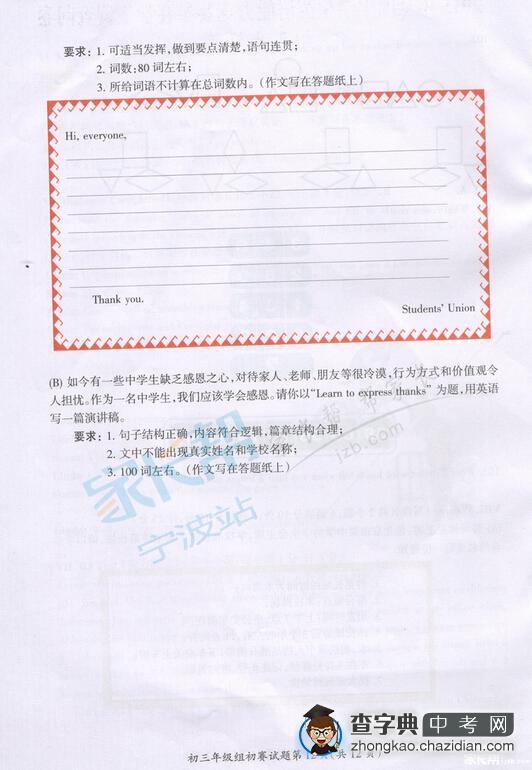 要求：1. 可适当发挥，做到要点清楚，语句连贯；
2. 词数：80 词左右；
3. 所给词语不计算在总词数内。（作文写在答题纸上）
Hi, everyone,
Thank you.
Students' Union
(B) 如今有一些中学生缺乏感恩之心，对待家人、老师、朋友等很冷漠，行为方式和价值观令
人担忧。作为一名中学生，我们应该学会感恩。请你以“Learn to express thanks”为题，用英语
写一篇演讲稿。
要求：1. 句子结构正确，内容符合逻辑，篇章结构合理；
2. 文中不能出现真实姓名和学校名称；
3. 100 词左右。（作文写在答题纸上）
家长帮
宁波站
jzb.com
初三年级组初赛试题第12页（共12页）
查字典中考网
zhongkao.chazidian.com